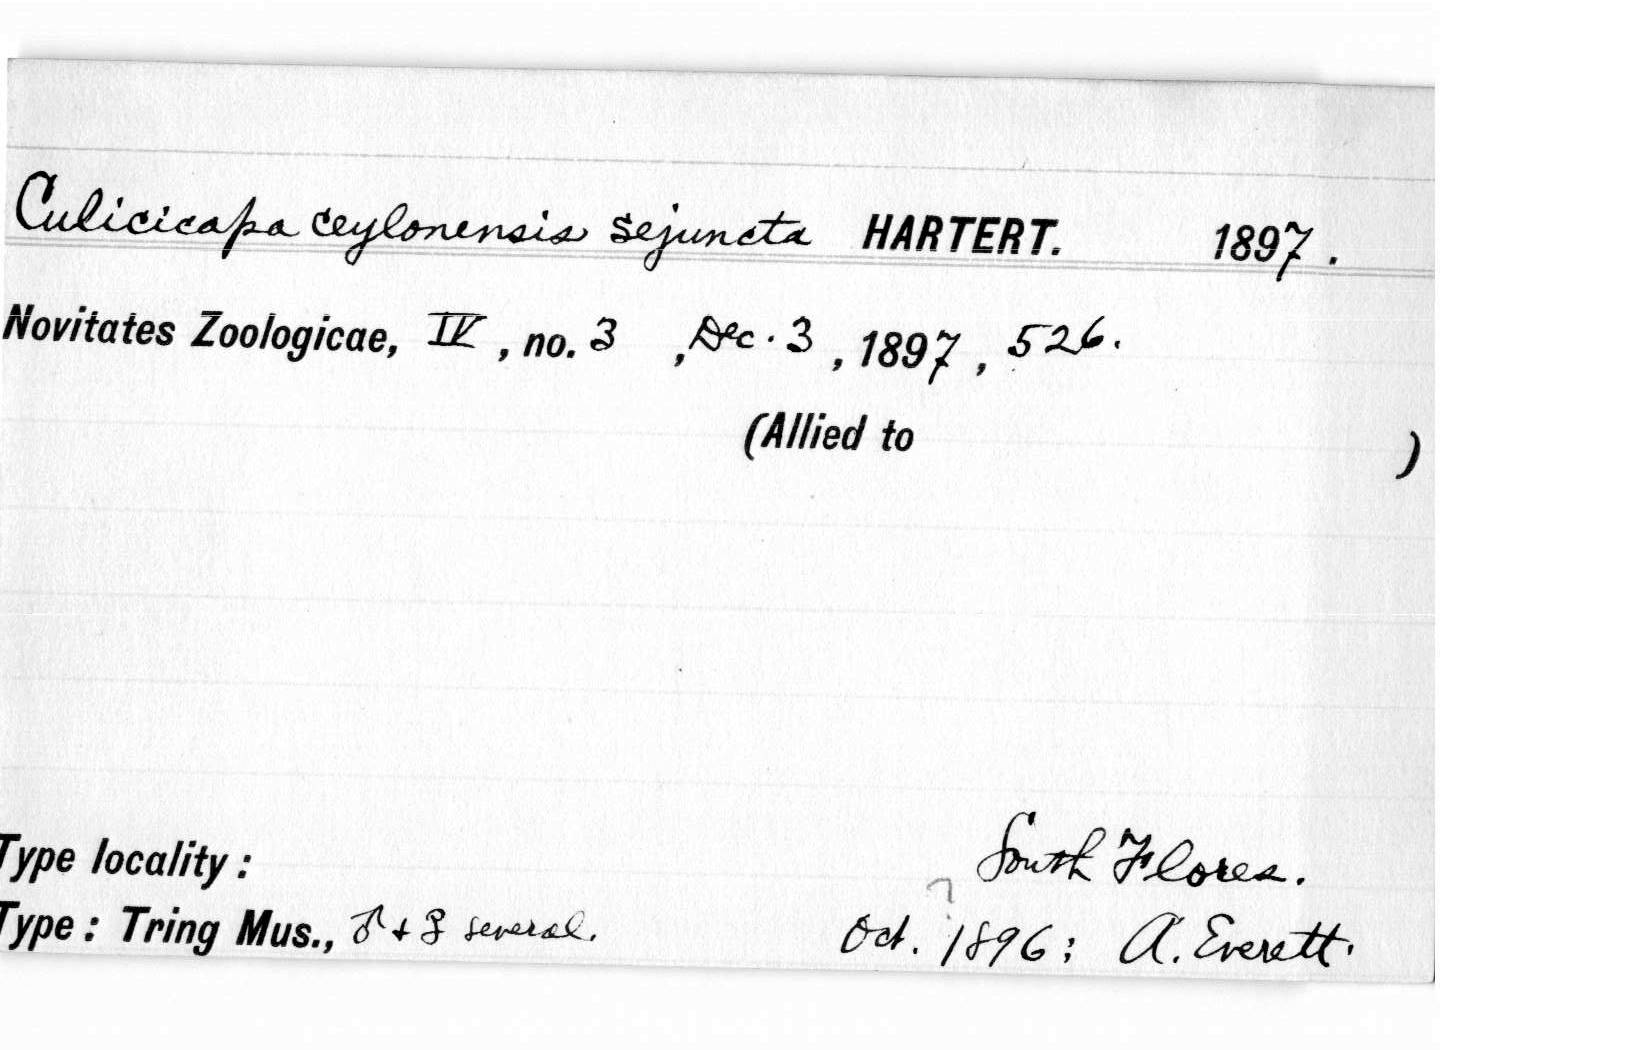 Culicicapa ceylonensis sejuncta HARTERT. 1897.
Novitates Zoologicae, IV, no. 3, Dec. 3, 1897, 526.
(Allied to )
Type locality: South Flores.
?
Type: Tring Mus., ♂ + ♀ several. Oct. 1896; A. Everett.